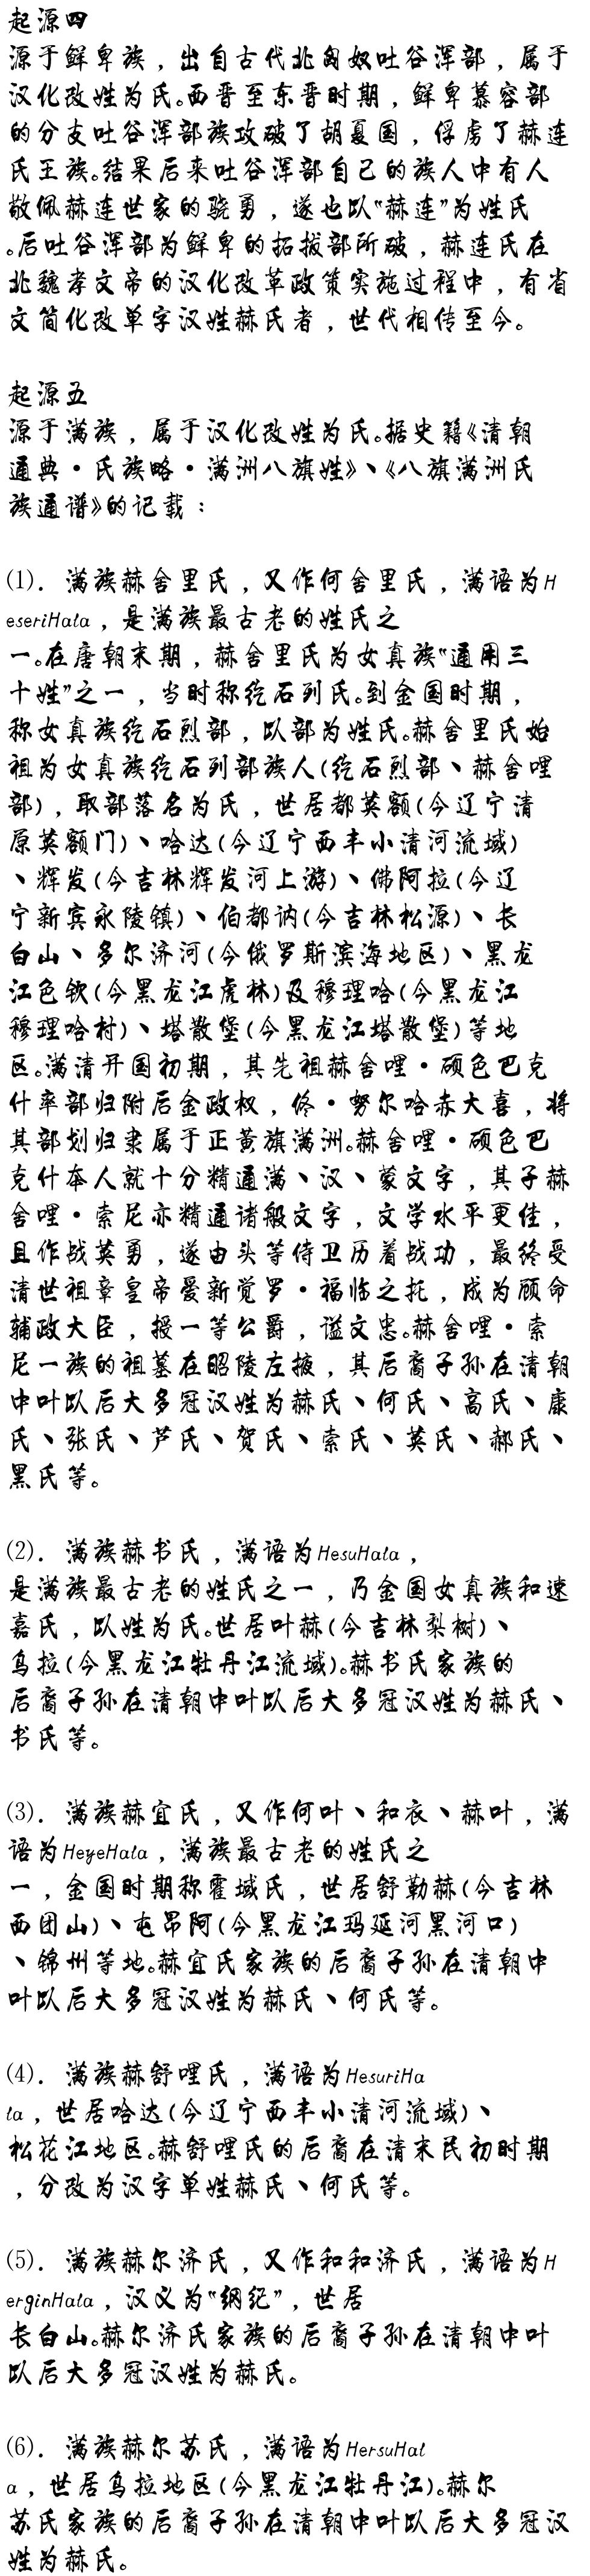 起源四
源于鲜卑族，出自古代北匈奴吐谷浑部，属于
汉化改姓为氏。西晋至东晋时期，鲜卑慕容部
的分支吐谷浑部族攻破了胡夏国，俘虏了赫连
氏王族。结果后来吐谷浑部自己的族人中有人
敬佩赫连世家的骁勇，遂也以“赫连”为姓氏
。后吐谷浑部为鲜卑的拓拔部所破，赫连氏在
北魏孝文帝的汉化改革政策实施过程中，有省
文简化改单字汉姓赫氏者，世代相传至今。
起源五
源于满族，属于汉化改姓为氏。据史籍《清朝
通典·氏族略·满洲八旗姓》、《八旗满洲氏
族通谱》的记载：
(1)．满族赫舍里氏，又作何舍里氏，满语为H
eseriHala，是满族最古老的姓氏之
一。在唐朝末期，赫舍里氏为女真族“通用三
十姓”之一，当时称纥石列氏。到金国时期，
称女真族纥石烈部，以部为姓氏。赫舍里氏始
祖为女真族纥石列部族人(纥石烈部、赫舍哩
部)，取部落名为氏，世居都英额(今辽宁清
原英额门)、哈达(今辽宁西丰小清河流域)
、辉发(今吉林辉发河上游)、佛阿拉(今辽
宁新宾永陵镇)、伯都讷(今吉林松源)、长
白山、多尔济河(今俄罗斯滨海地区)、黑龙
江色钦(今黑龙江虎林)及穆理哈(今黑龙江
穆理哈村)、塔散堡(今黑龙江塔散堡)等地
区。满清开国初期，其先祖赫舍哩·硕色巴克
什率部归附后金政权，佟·努尔哈赤大喜，将
其部划归隶属于正黄旗满洲。赫舍哩·硕色巴
克什本人就十分精通满、汉、蒙文字，其子赫
舍哩·索尼亦精通诸般文字，文学水平更佳，
且作战英勇，遂由头等侍卫历着战功，最终受
清世祖章皇帝爱新觉罗·福临之托，成为顾命
辅政大臣，授一等公爵，谥文忠。赫舍哩·索
尼一族的祖墓在昭陵左掖，其后裔子孙在清朝
中叶以后大多冠汉姓为赫氏、何氏、高氏、康
氏、张氏、芦氏、贺氏、索氏、英氏、郝氏、
黑氏等。
(2)．满族赫书氏，满语为HesuHala，
是满族最古老的姓氏之一，乃金国女真族和速
嘉氏，以姓为氏。世居叶赫(今吉林梨树)、
乌拉(今黑龙江牡丹江流域)。赫书氏家族的
后裔子孙在清朝中叶以后大多冠汉姓为赫氏、
书氏等。
(3)．满族赫宜氏，又作何叶、和衣、赫叶，满
语为HeyeHala，满族最古老的姓氏之
一，金国时期称霍域氏，世居舒勒赫(今吉林
西团山)、屯昂阿(今黑龙江玛延河黑河口)
、锦州等地。赫宜氏家族的后裔子孙在清朝中
叶以后大多冠汉姓为赫氏、何氏等。
(4)．满族赫舒哩氏，满语为HesuriHa
la，世居哈达(今辽宁西丰小清河流域)、
松花江地区。赫舒哩氏的后裔在清末民初时期
，分改为汉字单姓赫氏、何氏等。
(5)．满族赫尔济氏，又作和和济氏，满语为H
erginHala，汉义为“纲纪”，世居
长白山。赫尔济氏家族的后裔子孙在清朝中叶
以后大多冠汉姓为赫氏。
(6)．满族赫尔苏氏，满语为HersuHal
a，世居乌拉地区(今黑龙江牡丹江)。赫尔
苏氏家族的后裔子孙在清朝中叶以后大多冠汉
姓为赫氏。